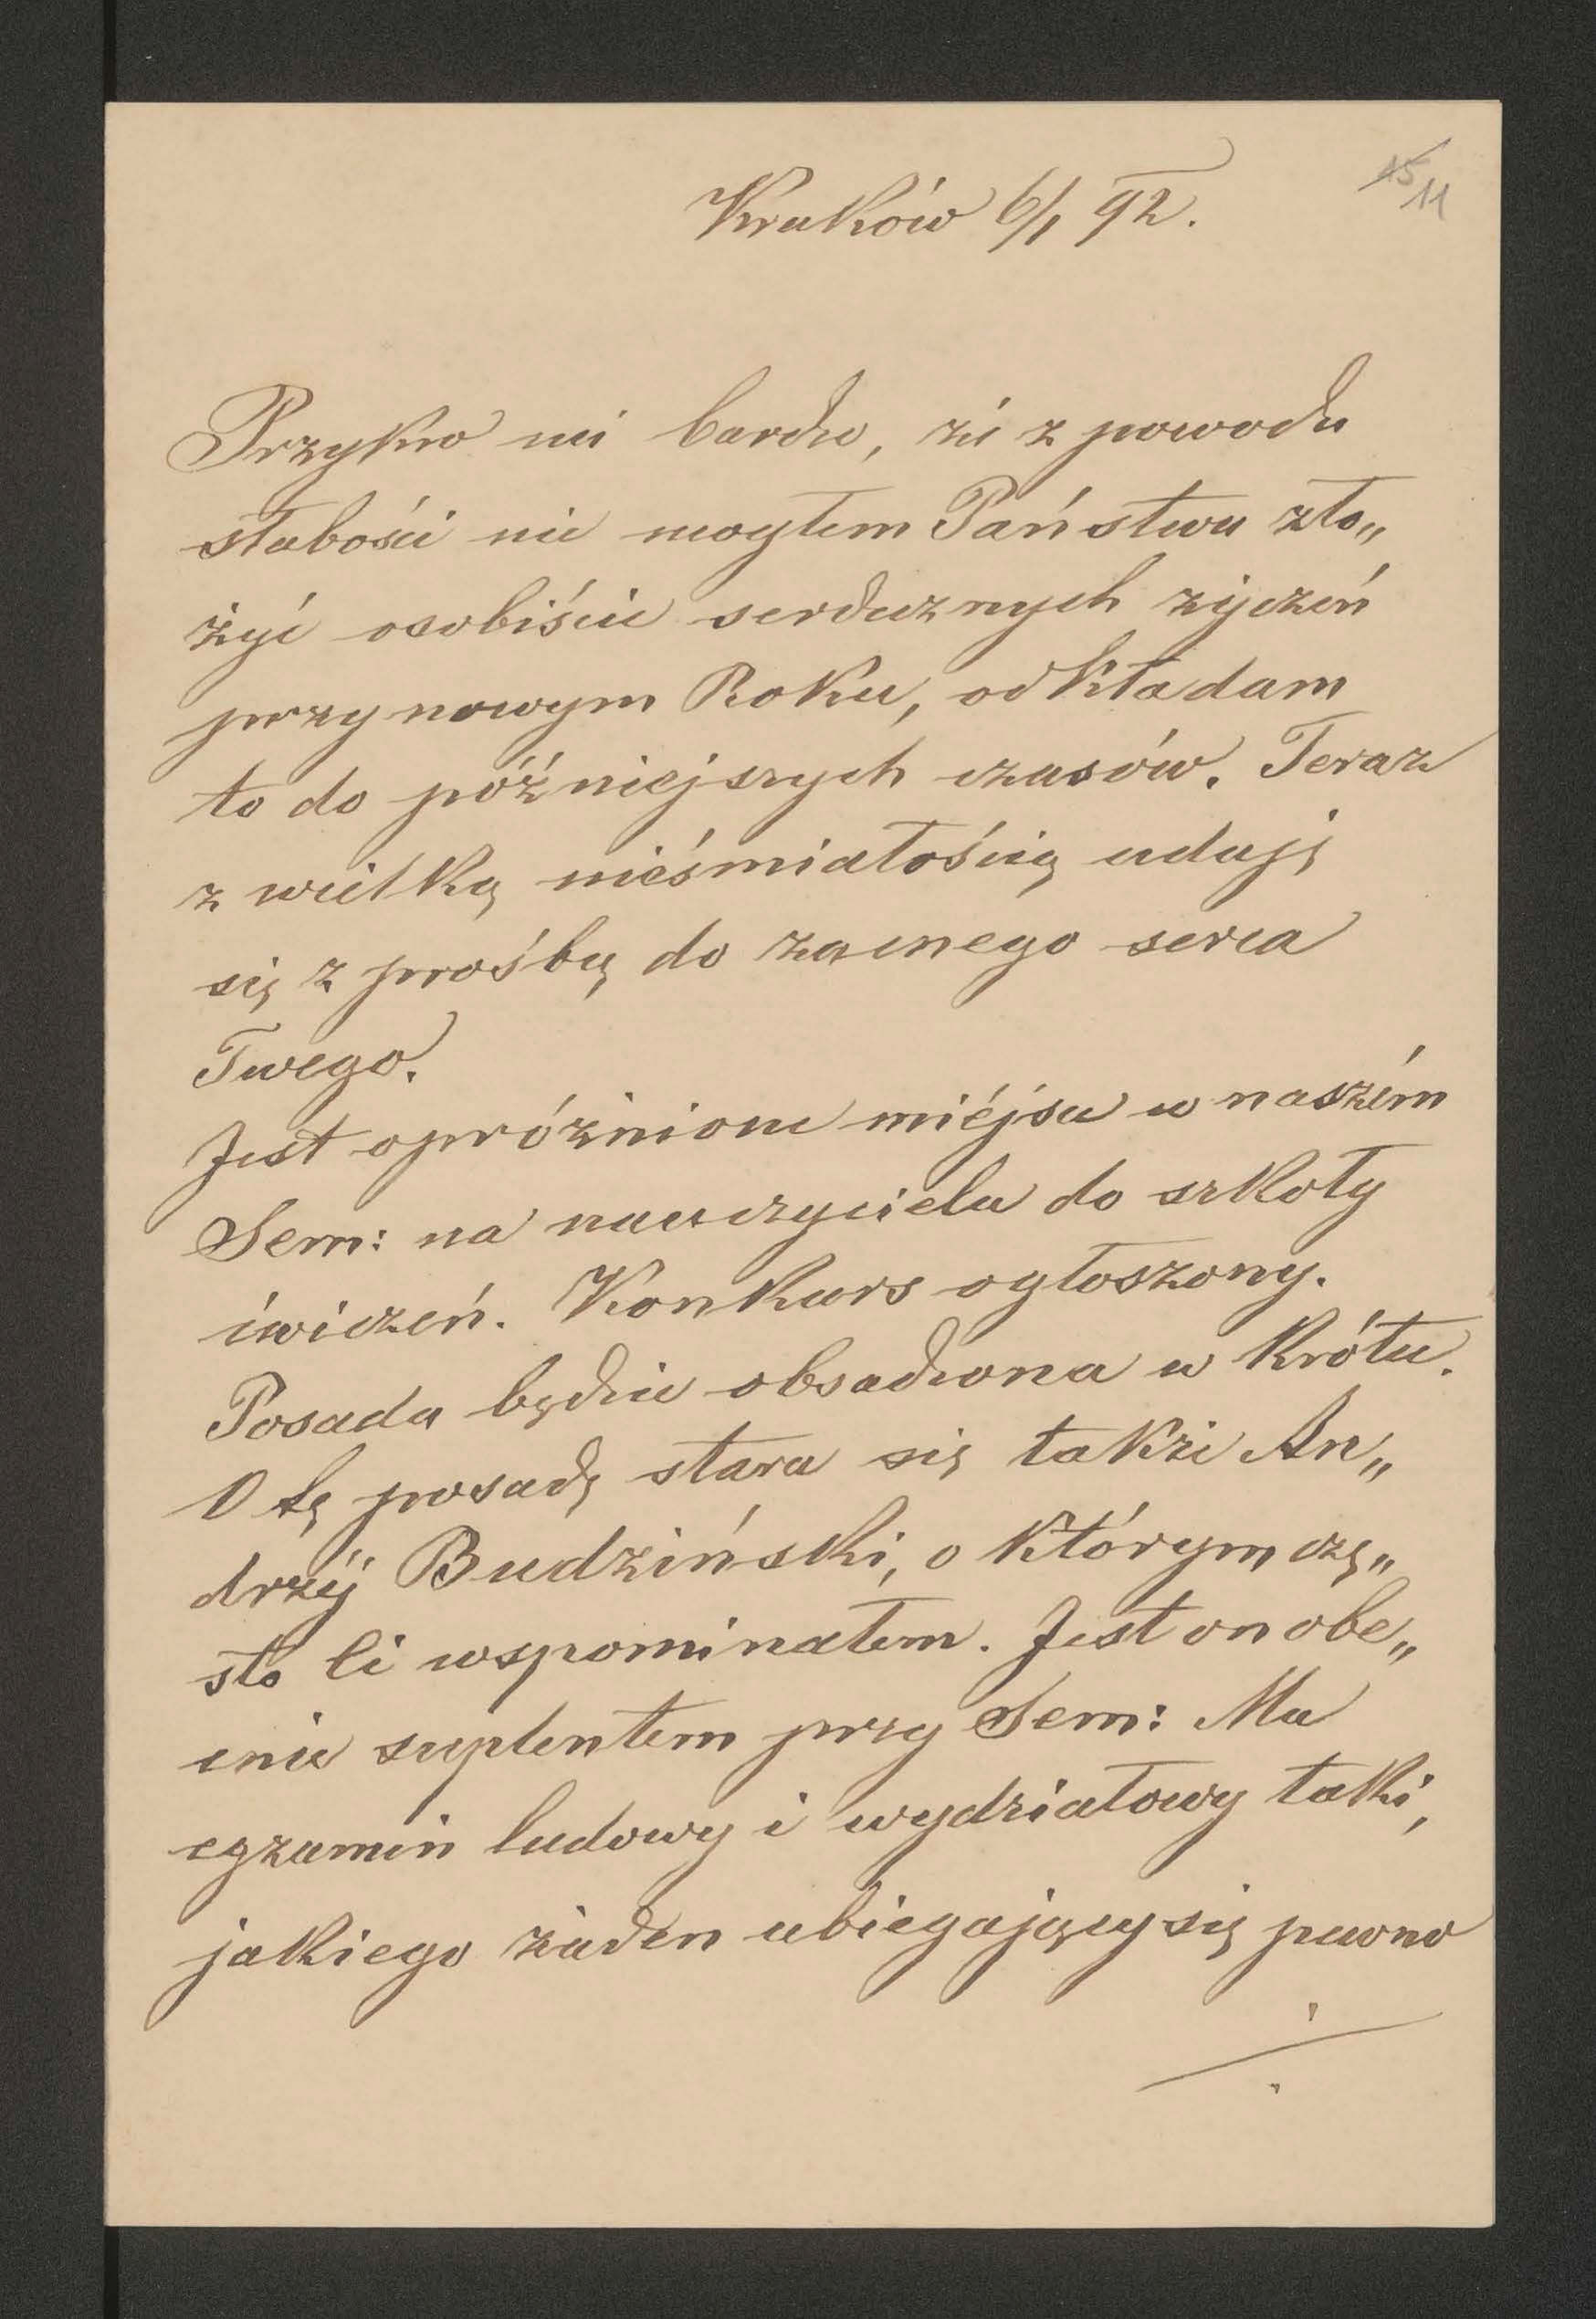 15 11
Kraków 6/1 92.
Przykro mi bardzo, że z powodu
słabości nie mogłem Państwu zło„
żyć osobiście serdecznych życzeń
przy nowym Roku, odkładam
to do późniejszych czasów. Teraz
z wielką nieśmiałością udaję
się z prośbą do zacnego serca
Twego.
Jest opróżnione miéjsce w naszém
Sem: na nauczyciela do szkoły
ćwiczeń. Konkurs ogłoszony.
Posada będzie obsadzona w krótce.
O tę posadę stara się także An„
drzéj Budziński, o którym czę„
sto Ci wspominałem. Jest on obe„
cnie suplentem przy Sem: Ma
egzamin ludowy i wydziałowy taki,
jakiego żaden ubiegający się pewno